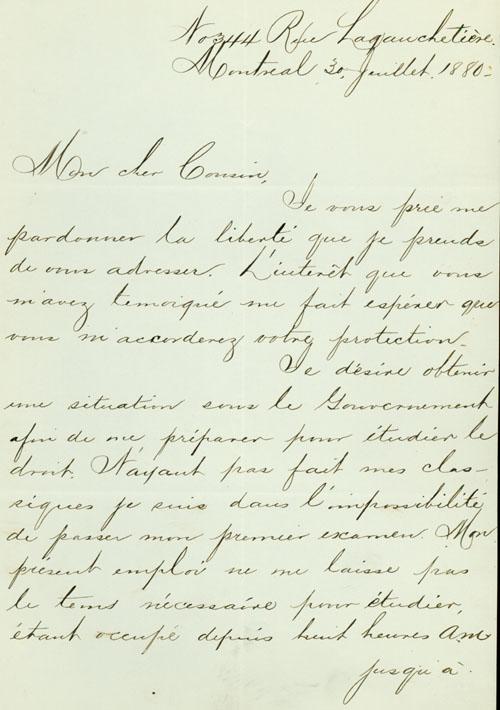 No 344 Rue Lagauchetière.
Montreal 30, Juillet. 1880=
Mon cher Cousin,
Je vous prie me
pardonner la liberté que je prends
de vous adresser. L'intérêt que vous
m'avez temoigné me fait espérer que
vous m'accorderez votre protection.
Je désire obtenir
une situation sous le Gouvernement
afin de me préparer pour étudier le
droit. N'ayant pas fait mes clas-
siques je suis dans l'impossibilité
de passer mon premier examen. Mon
présent emploi ne me laisse pas
le tems nécessaire pour étudier,
étant occupé depuis huit heures A.m
jusqu'à.